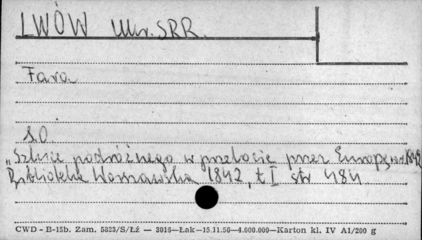 LWÓW Ukr. SRR.
Fara
S.O
„Szkice podróżnego w przelocie przez Europę w r. 1842
Biblioteka Warszawska 1842, t I str 484
CWD - B-15b. Zam. 5323/S/Łż — 3016—Łak—15.11.56—4.000.000—Karton kl. IV A1/200 g